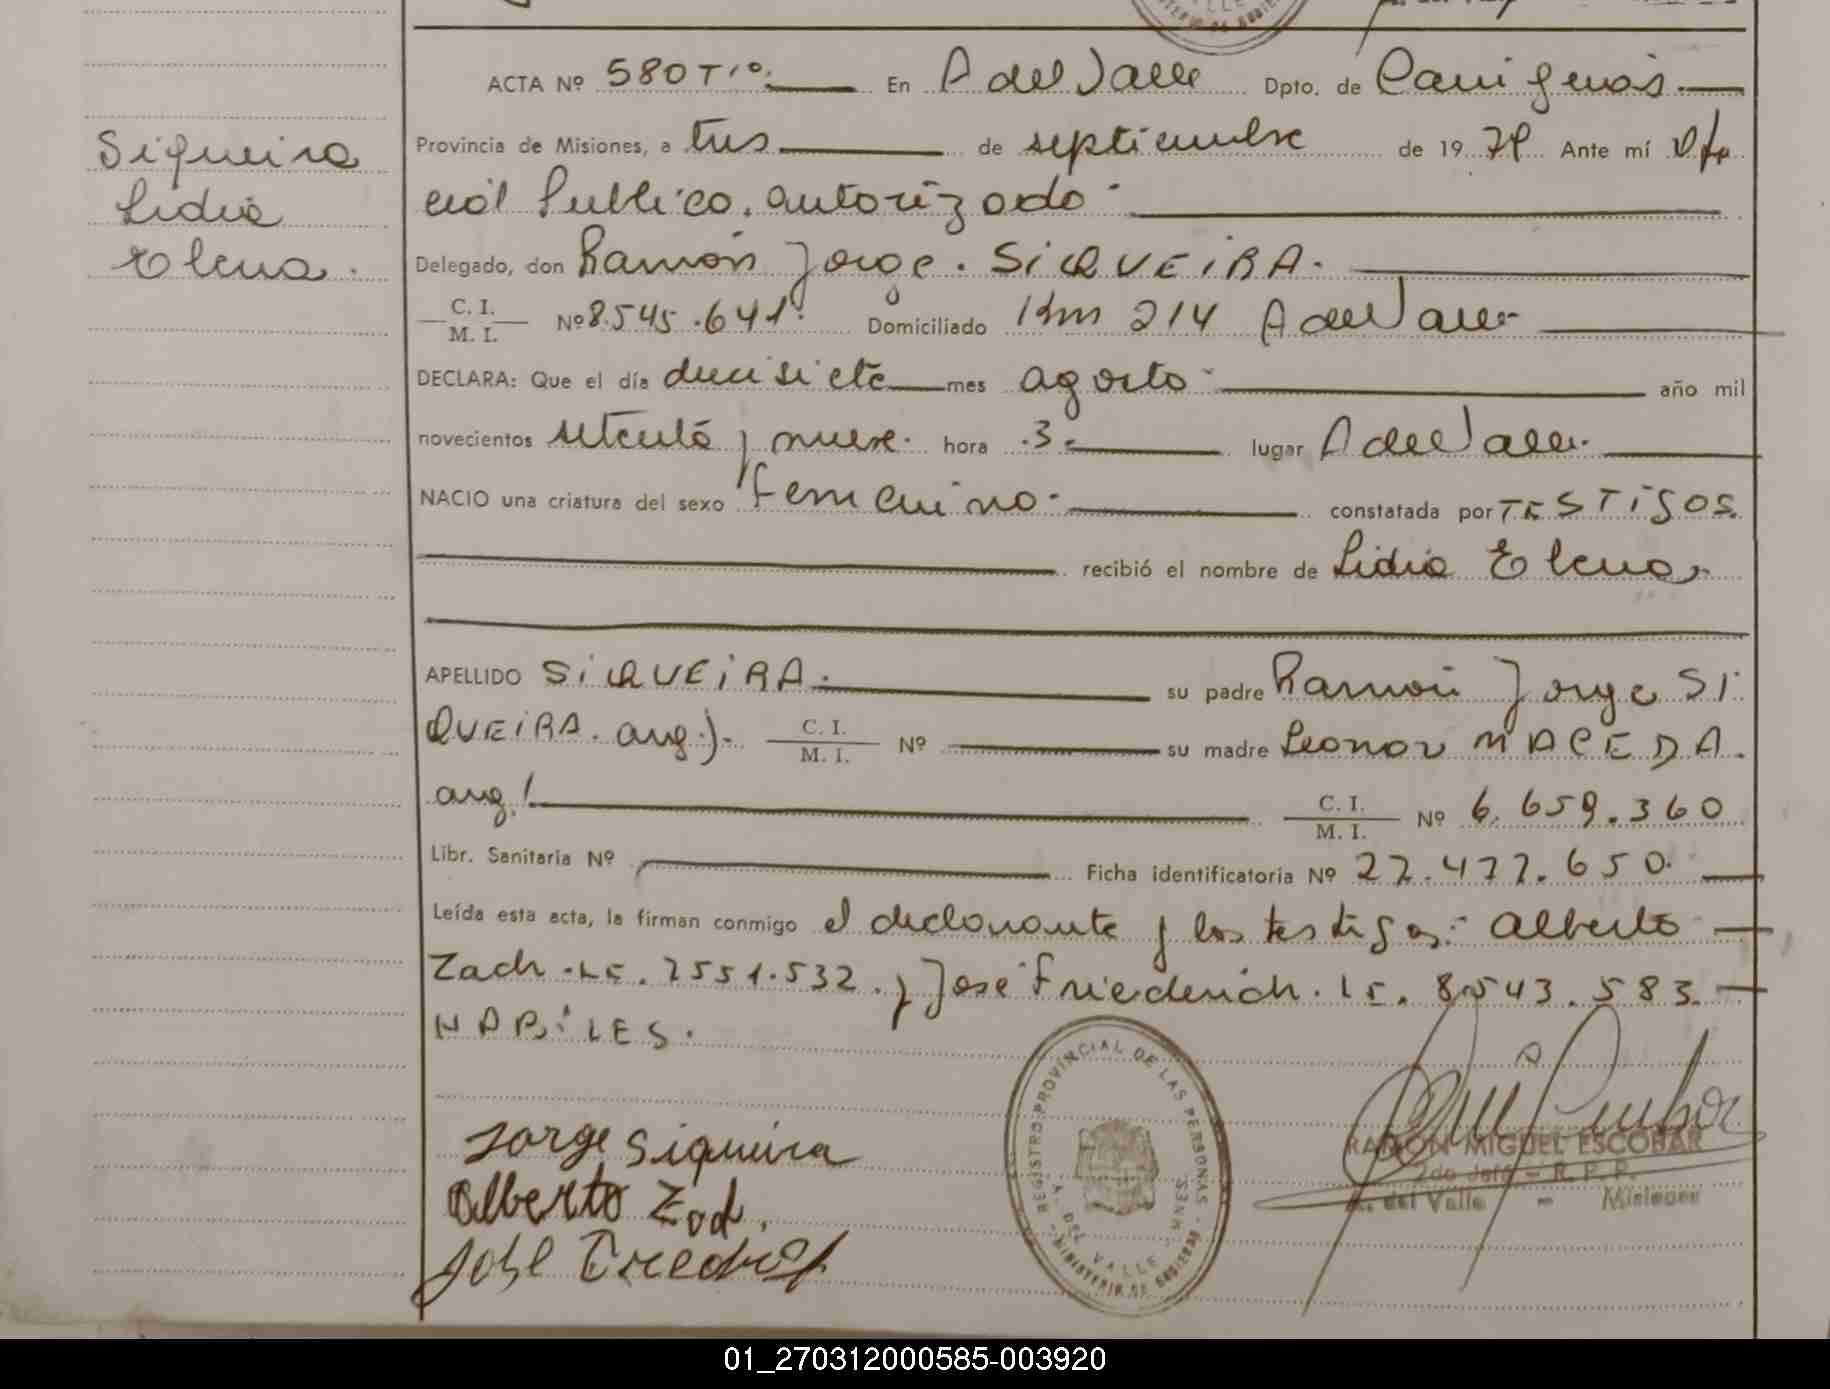 Siqueira
Lidia
Elena.
ACTA Nº 580 Tº. En A del Valle Dpto. de Cainguás.
Provincia de Misiones, a tres de septiembre de 1979 Ante mí Ofi
cial Publico. autorizado
Delegado, don Ramón Jorge. SiQUEiRA.
C. I.
M. I. Nº 8.545.641. Domiciliado Km 214 A del Valle
DECLARA: Que el día diecisiete mes agosto año mil
novecientos setenta y nueve. hora 3. lugar A del Valle.
NACIO una criatura del sexo femenino. constatada por TESTiGOS.
recibió el nombre de Lidia Elena.
APELLIDO SiQUEiRA. su padre Ramón Jorge SI
QUEiRA. arg.). C. I.
M. I. Nº su madre Leonor MACEDA.
arg.! C. I.
M. I. Nº 6.659.360
Libr. Sanitaria Nº Ficha identificatoria Nº 27.477.650.
Leída esta acta, la firman conmigo el declarante y los testigos: Alberto
Zach. LE. 7551.532. y José Friederich. LE. 8.543.583.
HABiLES.
Jorge Siqueira
Alberto Zach.
José
REGISTRO PROVINCIAL DE LAS PERSONAS
A. DEL VALLE - MNES.
MINISTERIO DE GOBIERNO
RAMON MIGUEL ESCOBAR
2do Jefe - R.P.P.
A. del Valle - Misiones
01_270312000585-003920